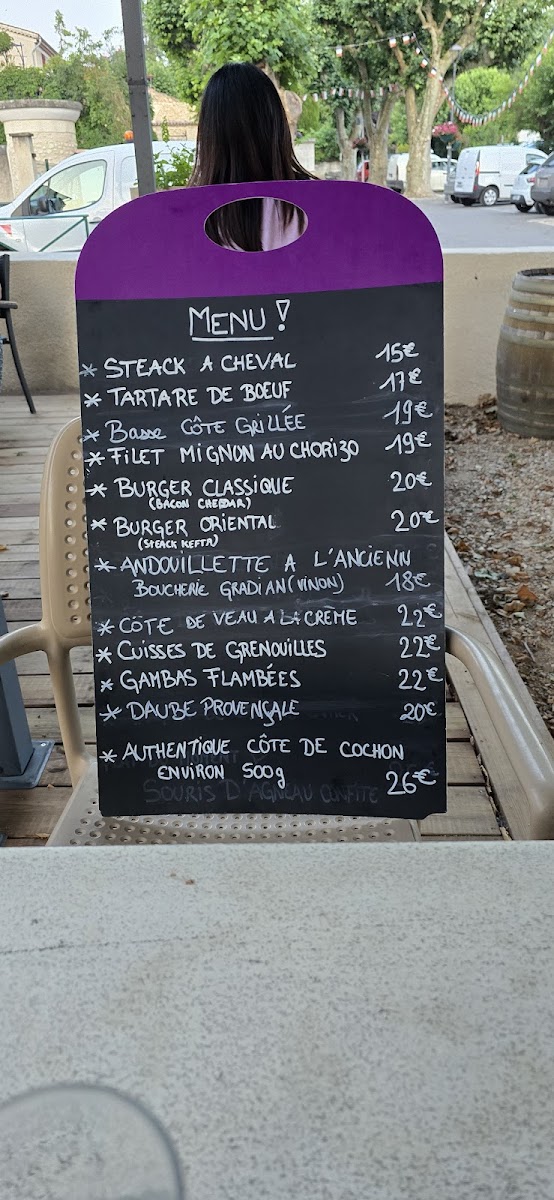 MENU !
* STEACK A CHEVAL 15€
* TARTARE DE BOEUF 17€
* Basse CÔTE GRILLÉE 19€
* FILET MIGNON AU CHORIZO 19€
* BURGER CLASSIQUE 20€
(BACON CHEDDAR)
* BURGER ORIENTAL 20€
(STEACK KEFTA)
* ANDOUILLETTE A L'ANCIENN
BOUCHERIE GRADIAN (VINON) 18€
* CÔTE DE VEAU A LA CRÈME 22€
* CUISSES DE GRENOUILLES 22€
* GAMBAS FLAMBÉES 22€
* DAUBE PROVENÇALE 20€
* AUTHENTIQUE CÔTE DE COCHON
ENVIRON 500g 26€
SOURIS D'AGNEAU CONFITE